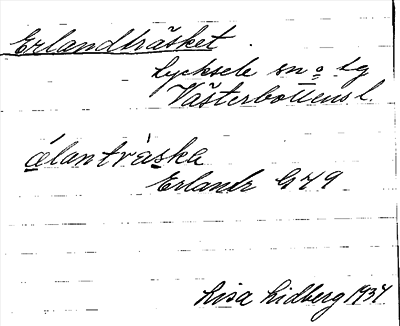 Erlandträsket
Lycksele sn o lg
Västerbottens l.
álantràska
Erlandr G 49
Lisa Lidberg 1934